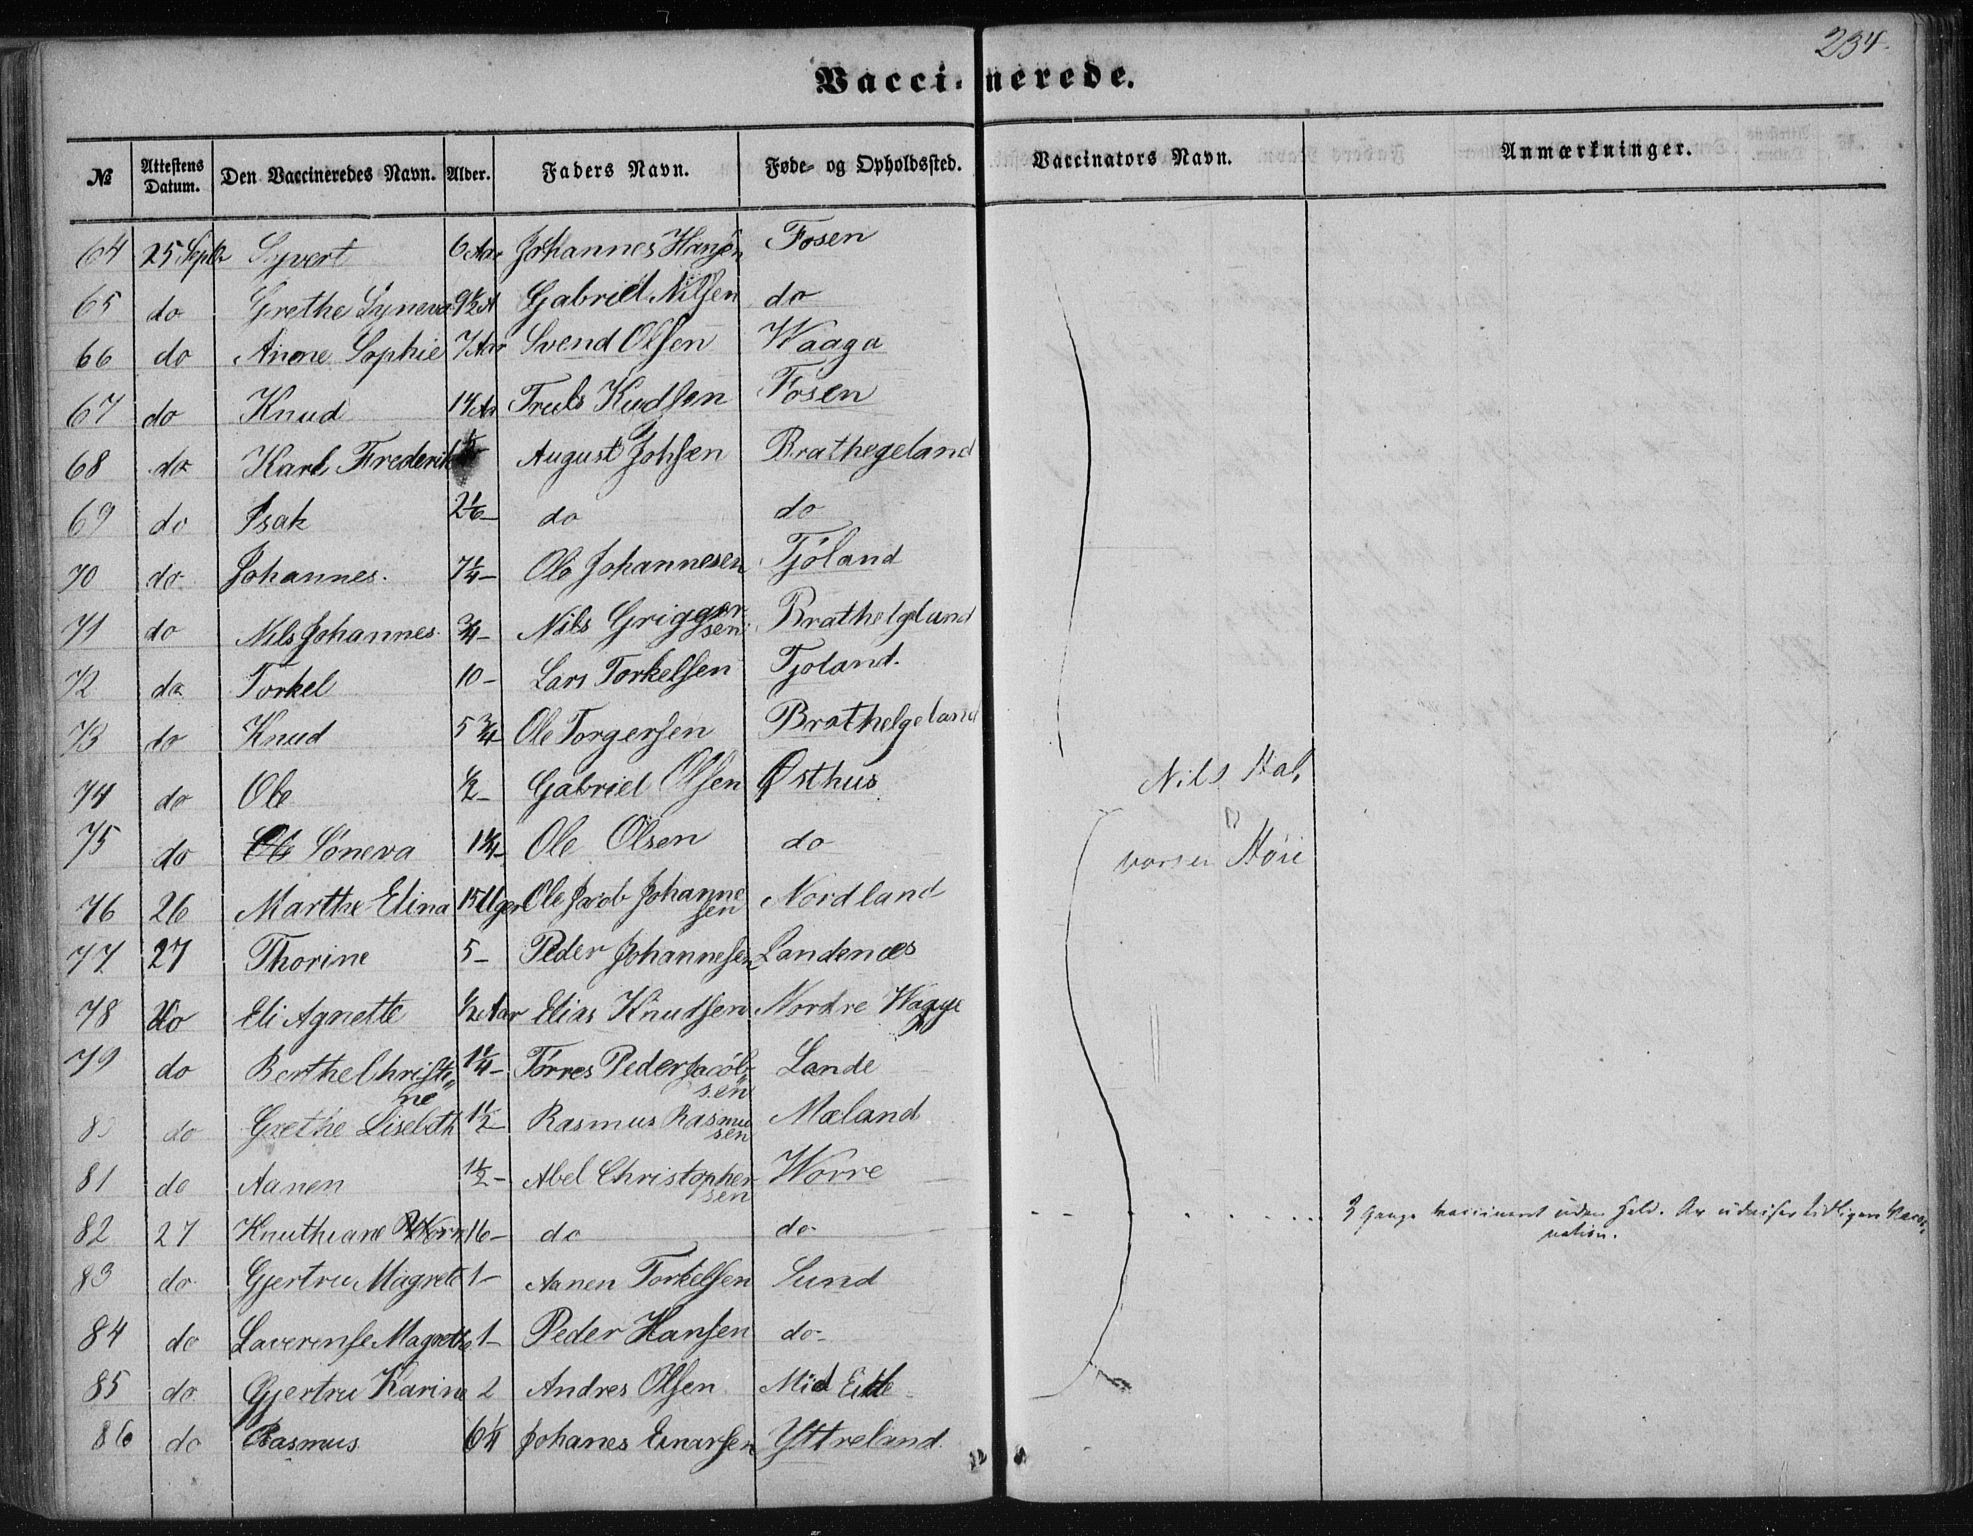 234.
Vaccinerede.
№ Attestens Datum. Den Vaccineredes Navn. Alder. Faders Navn. Føde- og Opholdssted. Vaccinators Navn. Anmærkninger.
64 25 Septr Syvert 6 Aar Johannes Hansen Fosen
65 do Grethe Syneva 9½ A Gabriel Nilsen do
66 do Anne Sophie 7 Aar Svend Olsen Waaga
67 do Knud 14 Aar Truls Kudsen Fosen
68 do Karl Frederik August Johsen Brathegeland
69 do Isak 2 1/6 – do do
70 do Johannes. 7¼ – Ole Johannesen Tjøland
71 do Nils Johannes. ¾ – Nils Griggersen Brathelgeland
72 do Torkel 10 – Lars Torkelsen Tjoland.
73 do Knud 5¾ Ole Torgersen Brathelgeland
74 do Ole ½ – Gabriel Olsen Østhus
Nils Hal,
75 do Søneva 1¼ – Ole Olsen do
vorsen Høie
76 26 Marthe Elina 15 Uger Ole Jacob Johannesen Nordland
77 27 Thorine 5 – Peder Johannesen Landenæs
78 do Eli Agnette ½ Aar Elias Knudsen Nordre Waage
79 do Berthe Christine 1¼ – Tørres Peder Jacobsen Lande
80 do Grethe Lisebth 1½ Rasmus Rasmusen Mæland
81 do Aanen 1½ – Abel Christophersen Worre
82 27 Knuthiane Worre 16 – do do 3 Gange vaccineret uden Held. Ar udviser tidligere Vaccination.
83 do Gjertru Magrete 1 – Aanen Torkelsen Sund
84 do Laverense Magrethe 1 – Peder Hansen do –
85 do Gjertru Karine 2 Andres Olsen Mid Eitte
86 do Rasmus 6¼ Johanes Einarsen Yttreland.